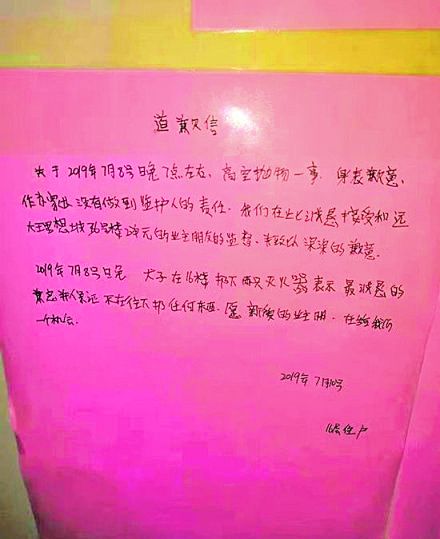 道歉信
关于2019年7月8号晚7点左右，高空抛物一事，身表歉意，
作为家长没有做到监护人的责任，我们在此诚恳接受和远
大理想城36号楼2单元的业主朋友的监督，致以深深的歉意。
2019年7月8号晚 犬子在16楼扔下两只灭火器 表示最诚恳的
歉意 保证 不在往下扔任何东西，愿 的业主朋，在给我们
一个机会。
2019年7月10号
16层住户